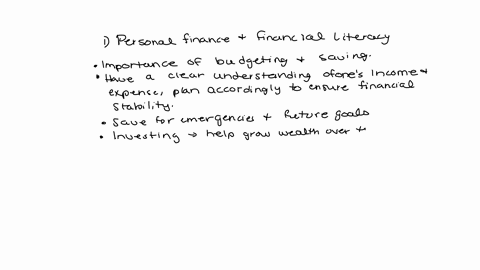 1) Personal finance + financial literacy
• Importance of budgeting + saving.
• Have a clear understanding of one's income +
expense, plan accordingly to ensure financial
stability.
• Save for emergencies + future goals
• Investing → help grow wealth over t